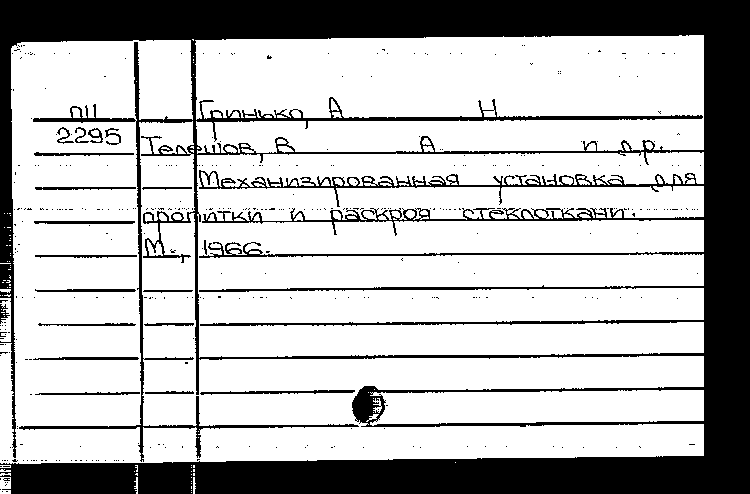 П11 Гринько, А Н
2295 Телешов, В А и др.
Механизированная установка для
пропитки и раскроя стеклоткани.
М., 1966.